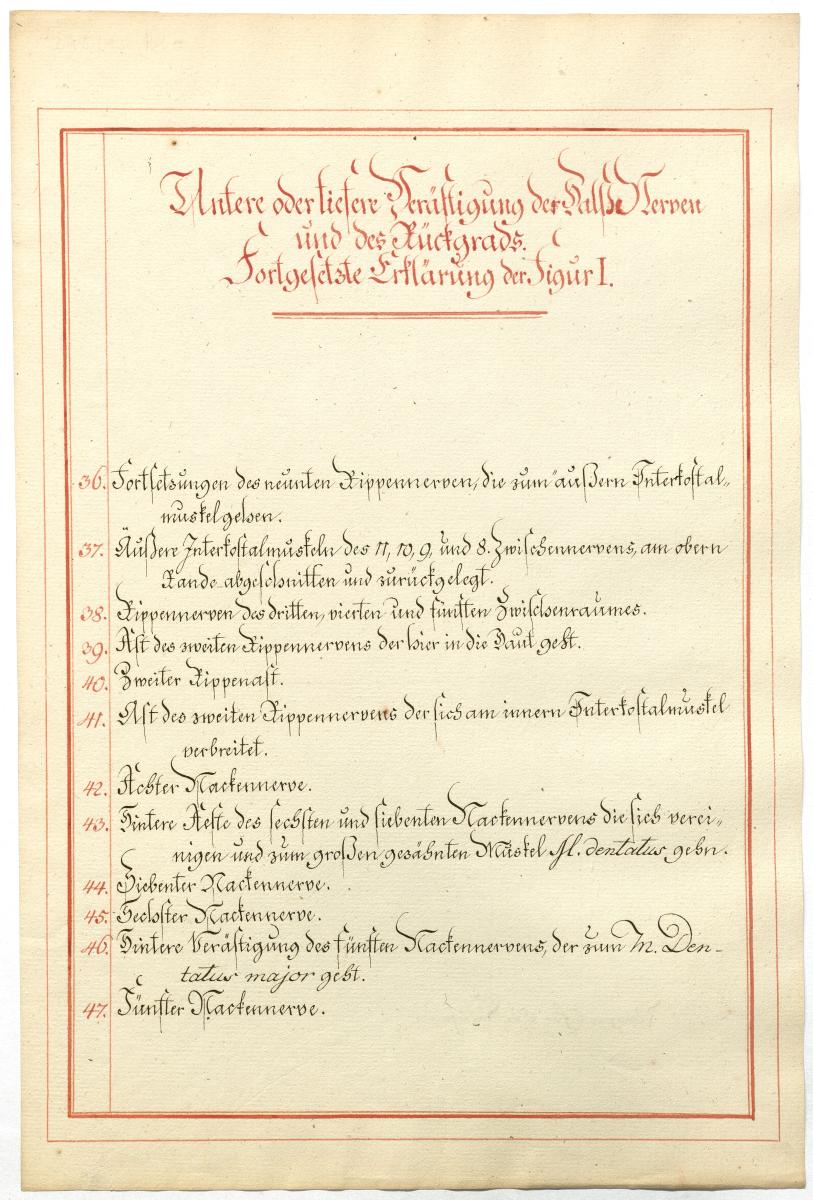 Untere oder tiefere Verästigung der Halß Nerven
und des Rückgrads.
Fortgesetzte Erklärung der Figur I.
36. Fortsetzungen des neunten Rippennerven, die zum äußern Interkostal„
muskel gehen.
37. Äußere Interkostalmuskeln des 11, 10, 9, und 8. Zwischennervens, am obern
Rande abgeschnitten und zurückgelegt.
38. Rippennerven des dritten, vierten und fünften Zwischenraumes.
39. Ast des zweiten Rippennervens der hier in die Haut geht.
40. Zweiter Rippenast.
41. Ast des zweiten Rippennervens der sich am innern Interkostalmuskel
verbreitet.
42. Achter Nackennerve.
43. Hintere Aeste des sechsten und siebenten Nackennervens die sich verei„
nigen und zum großen gezähnten Muskel M. dentatus gehn.
44. Siebenter Nackennerve.
45. Sechster Nackennerve.
46. Hintere Verästigung des fünften Nackennervens, der zum M. Den-
tatus major geht.
47. Fünfter Nackennerve.